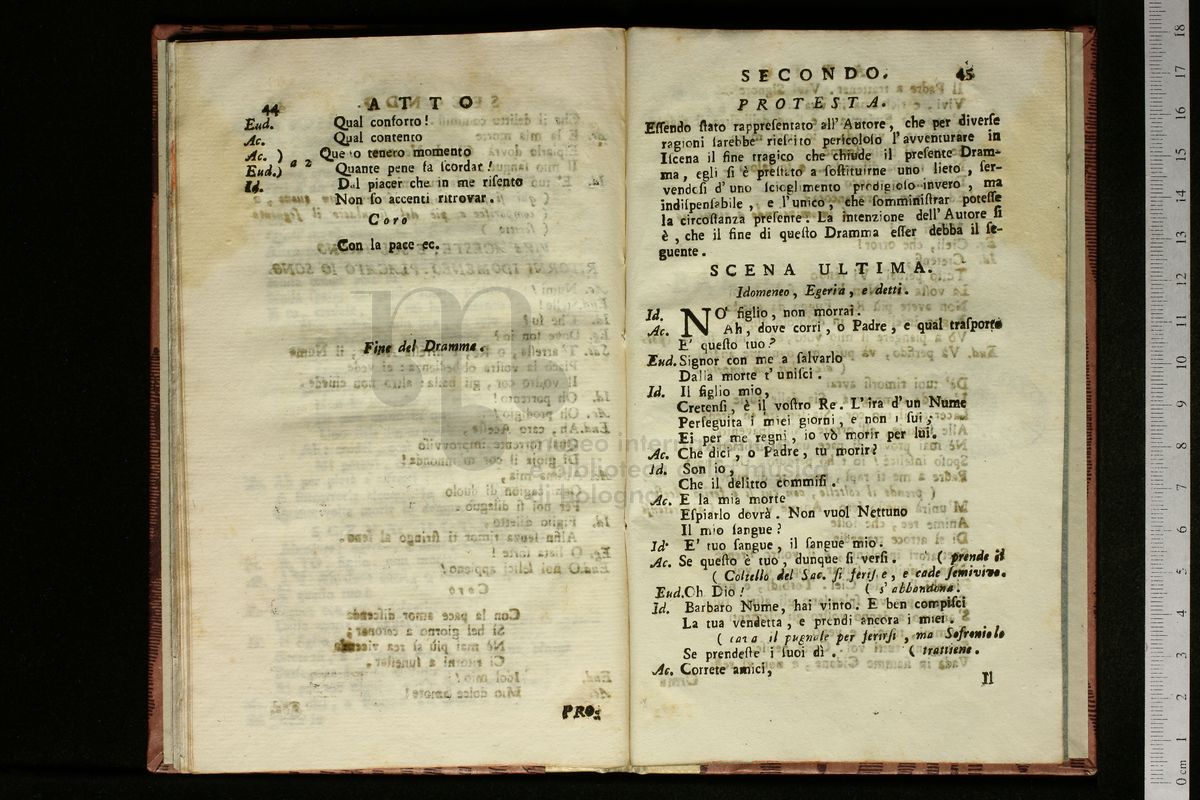 44 ATTO
Eud. Qual conforto!
Ac. Qual contento
Ac. ) a 2 Que o tenero momento
Eud.) Quante pene fa scordar!
Id. Dal piacer che in me risento
Non so accenti ritrovar.
Coro
Con la pace ec.
Fine del Dramma.
PRO-
SECONDO. 45
PROTESTA.
Essendo stato rappresentato all' Autore, che per diverse
ragioni sarebbe riescito pericoloso l'avventurare in
Iscena il fine tragico che chiude il presente Dram-
ma, egli si è prestato a sostituirne uno lieto, ser-
vendosi d'uno scioglimento prodigioso invero, ma
indispensabile, e l'unico, che somministrar potesse
la circostanza presente. La intenzione dell' Autore si
è, che il fine di questo Dramma esser debba il se-
guente.
SCENA ULTIMA.
Idomeneo, Egeria, e detti.
Id. NO' figlio, non morrai.
Ac. Ah, dove corri, o Padre, e qual trasporto
E' questo tuo?
Eud. Signor con me a salvarlo
Dalla morte t'unisci.
Id. Il figlio mio,
Cretensi, è il vostro Re. L'ira d'un Nume
Perseguita i miei giorni, e non i sui;
Ei per me regni, io vò morir per lui.
Ac. Che dici, o Padre, tu morir?
Id. Son io,
Che il delitto commisi.
Ac. E la mia morte
Espiarlo dovrà. Non vuol Nettuno
Il mio sangue?
Id. E' tuo sangue, il sangue mio.
Ac. Se questo è tuo, dunque si versi. ( prende il
( Coltello del Sac. si ferisce, e cade semivivo.
Eud. Oh Dio! ( s'abbandona.
Id. Barbaro Nume, hai vinto. E ben compisci
La tua vendetta, e prendi ancora i miei.
( cava il pugnale per ferirsi, ma Sofronio lo
Se prendeste i suoi dì. ( trattiene.
Ac. Correte amici,
Il
museo internazionale
e biblioteca della musica
di Bologna
0 cm 1 2 3 4 5 6 7 8 9 10 11 12 13 14 15 16 17 18